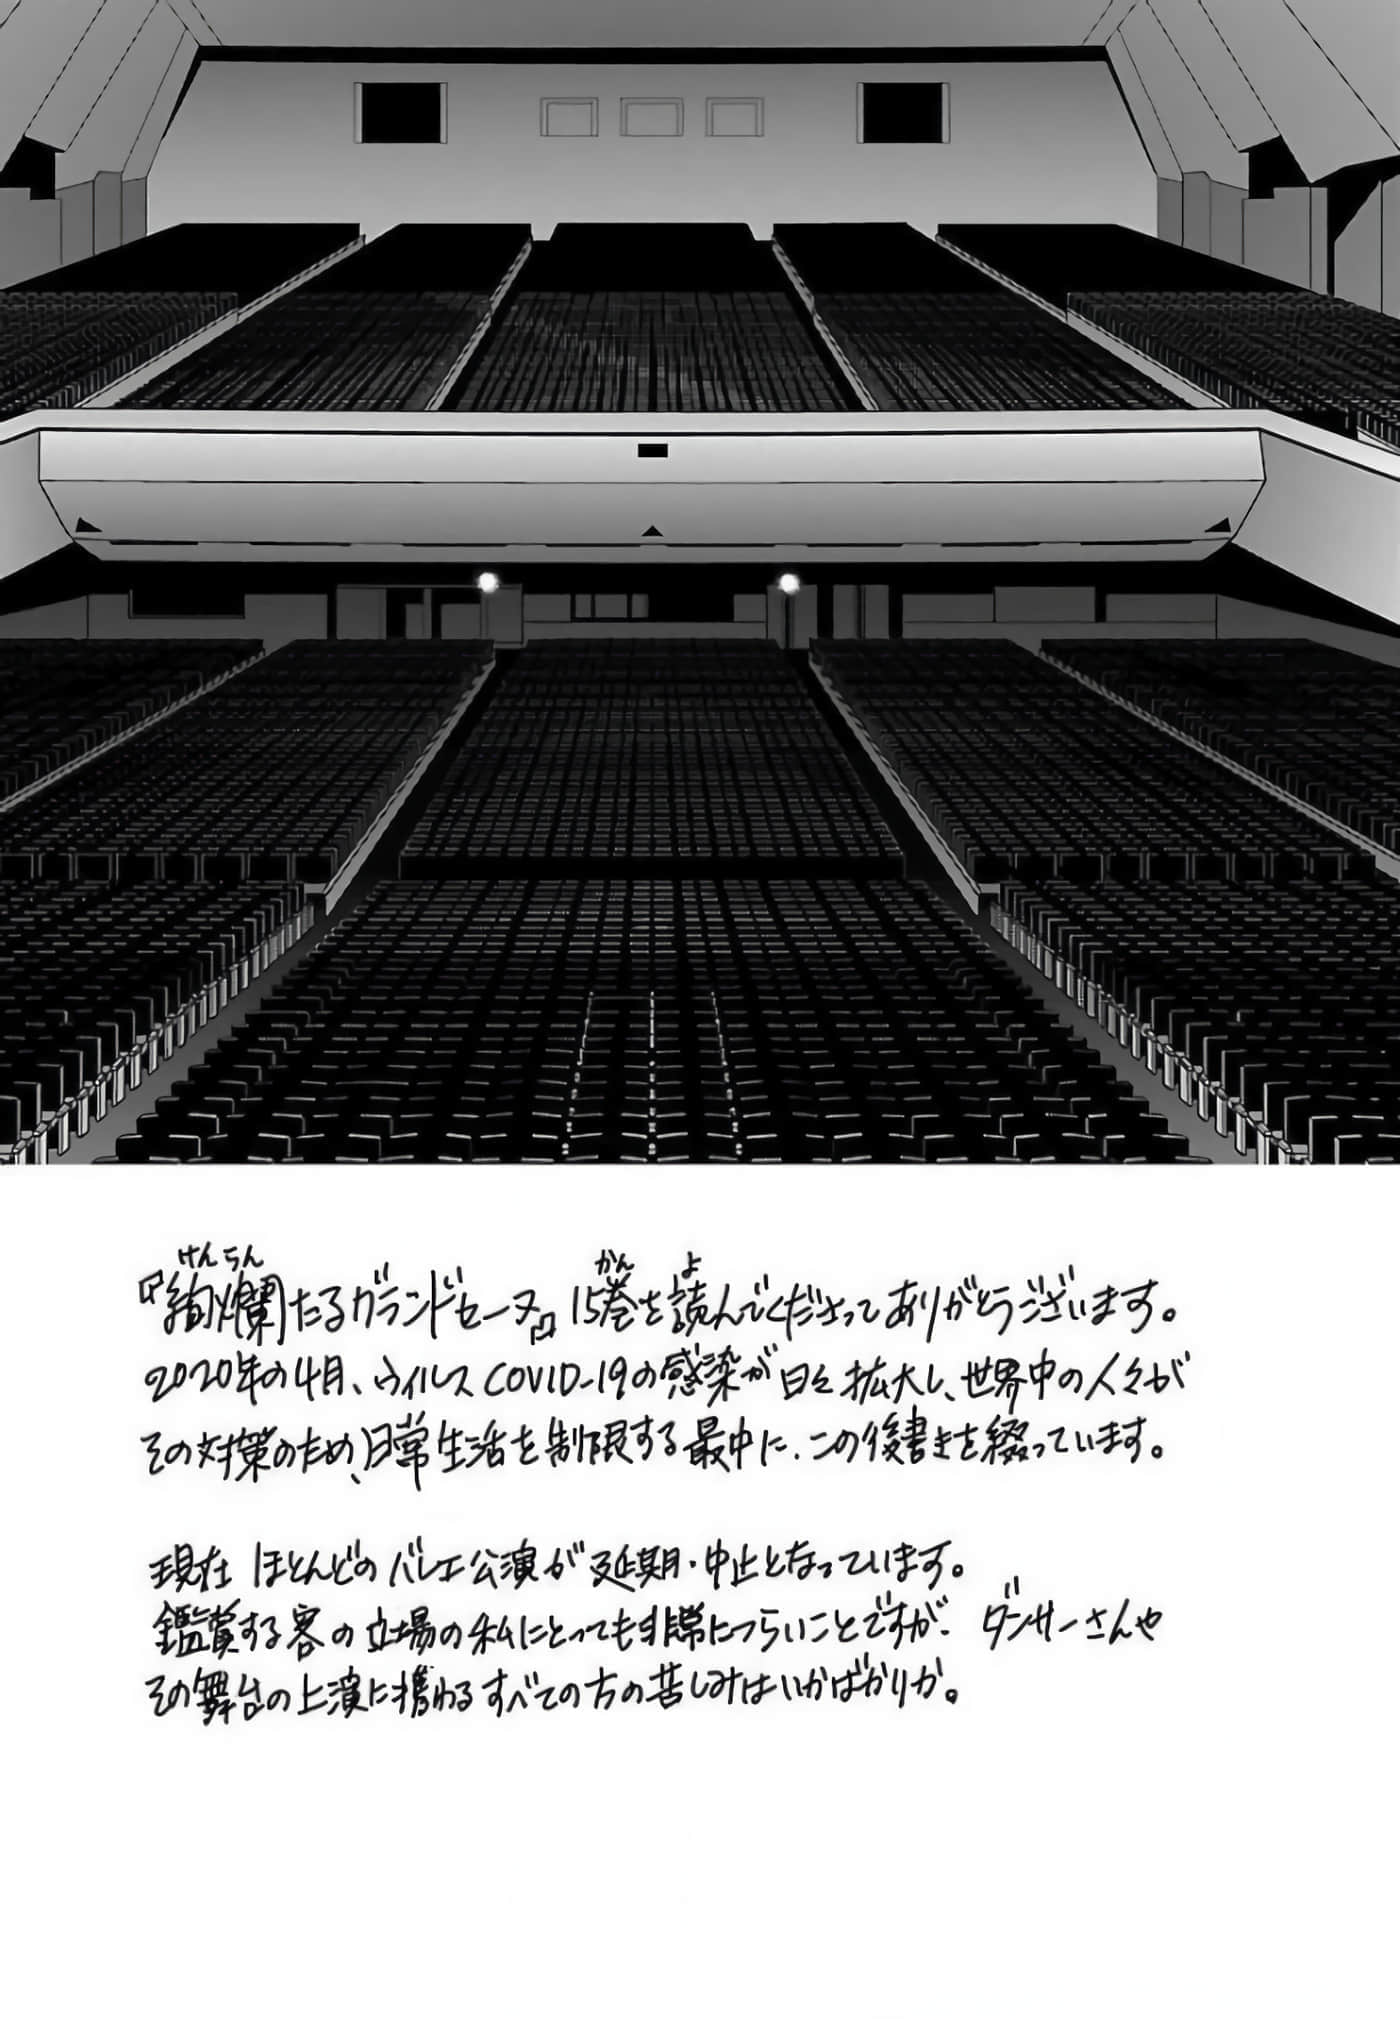 『絢爛たるグランドセーヌ』15巻を読んでくださってありがとうございます。
2020年の4月、ウイルスCOVID-19の感染が日々拡大し、世界中の人々が
その対策のため、日常生活を制限する最中に、この後書きを綴っています。
現在 ほとんどのバレエ公演が延期・中止となっています。
鑑賞する客の立場の私にとっても非常につらいことですが、ダンサーさんや
その舞台の上演に携わるすべての方の苦しみはいかばかりか。